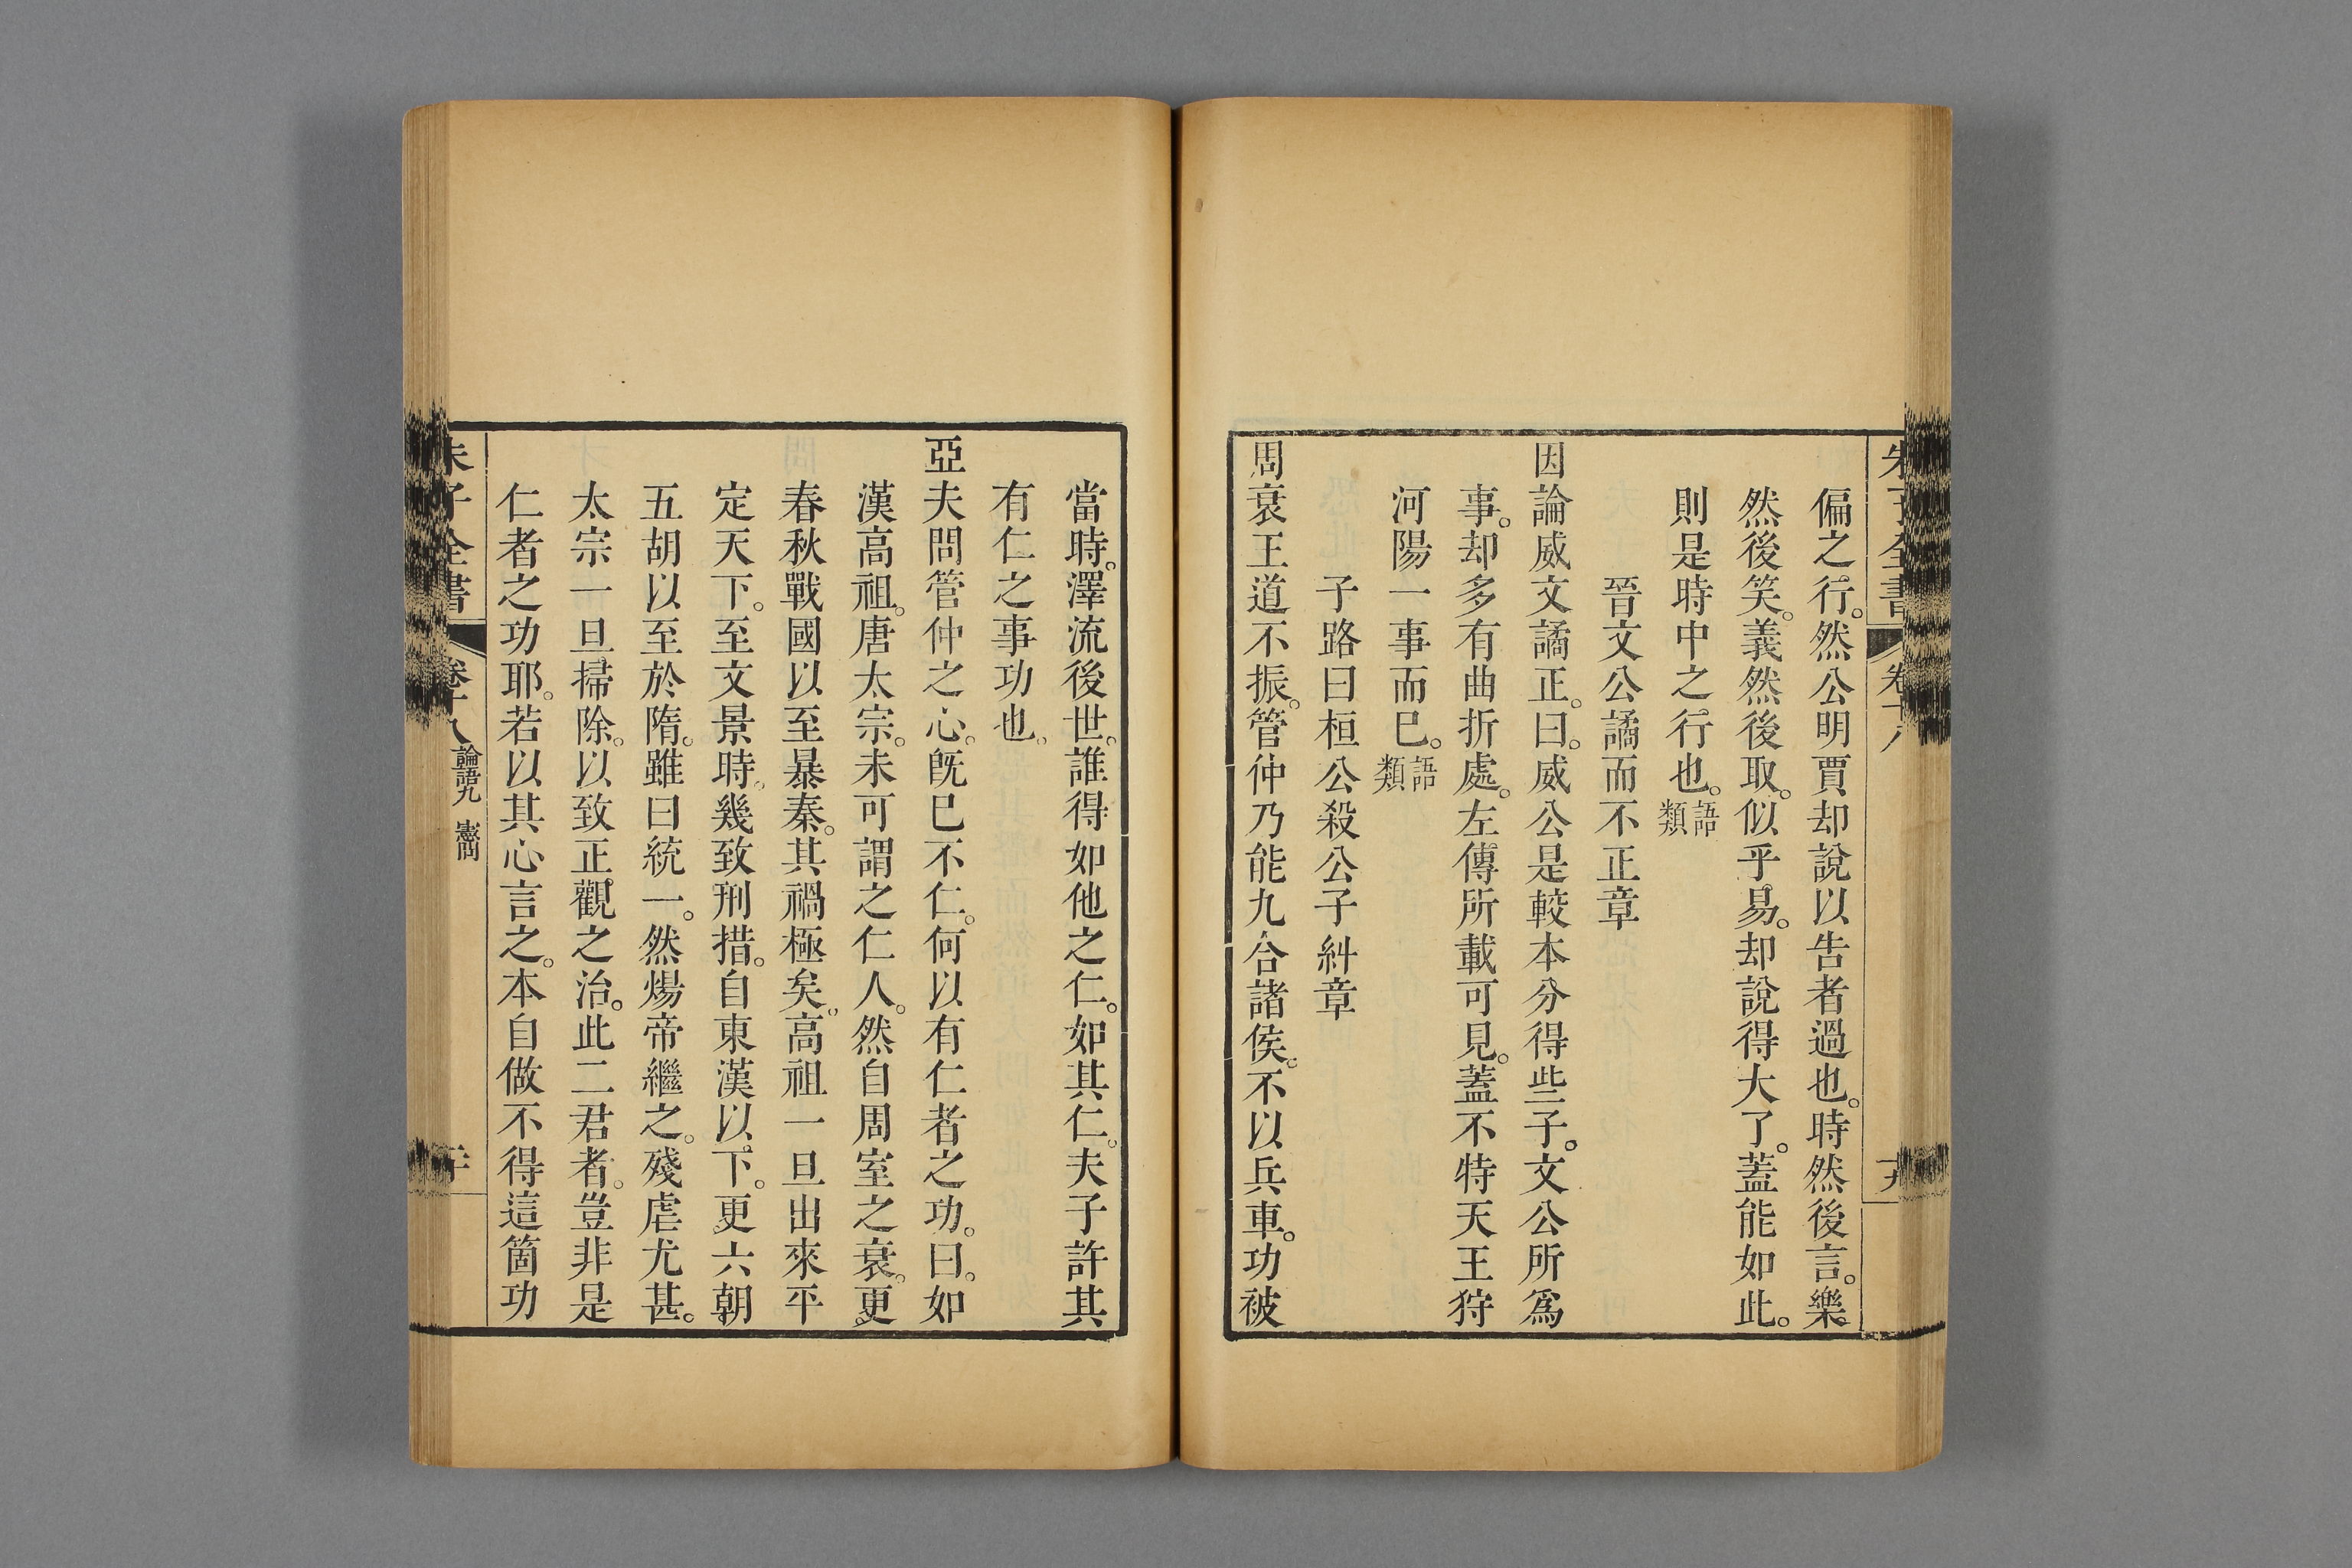 朱子全書 卷十八 十九
偏之行。然公明賈却說以告者過也。時然後言。樂。
然後笑。義然後取。似乎易。却說得大了。蓋能如此。
則是時中之行也。語類
晉文公譎而不正章
因論威文譎正。曰。威公是較本分得些子。文公所爲
事。却多有曲折處。左傳所載可見。蓋不特天王狩
河陽一事而已。語類
子路曰桓公殺公子糾章
周衰王道不振。管仲乃能九合諸侯。不以兵車。功被
當時。澤流後世。誰得如他之仁。如其仁。夫子許其
有仁之事功也。
亞夫問管仲之心。旣已不仁。何以有仁者之功。曰。如
漢高祖。唐太宗。未可謂之仁人。然自周室之衰。更
春秋戰國以至暴秦。其禍極矣。高祖一旦出來平
定天下。至文景時。幾致刑措。自東漢以下。更六朝
五胡以至於隋。雖曰統一。然煬帝繼之。殘虐尤甚。
太宗一旦掃除。以致正觀之治。此二君者。豈非是
仁者之功耶。若以其心言之。本自做不得這箇功
朱子全書 卷十八 論語九 憲問